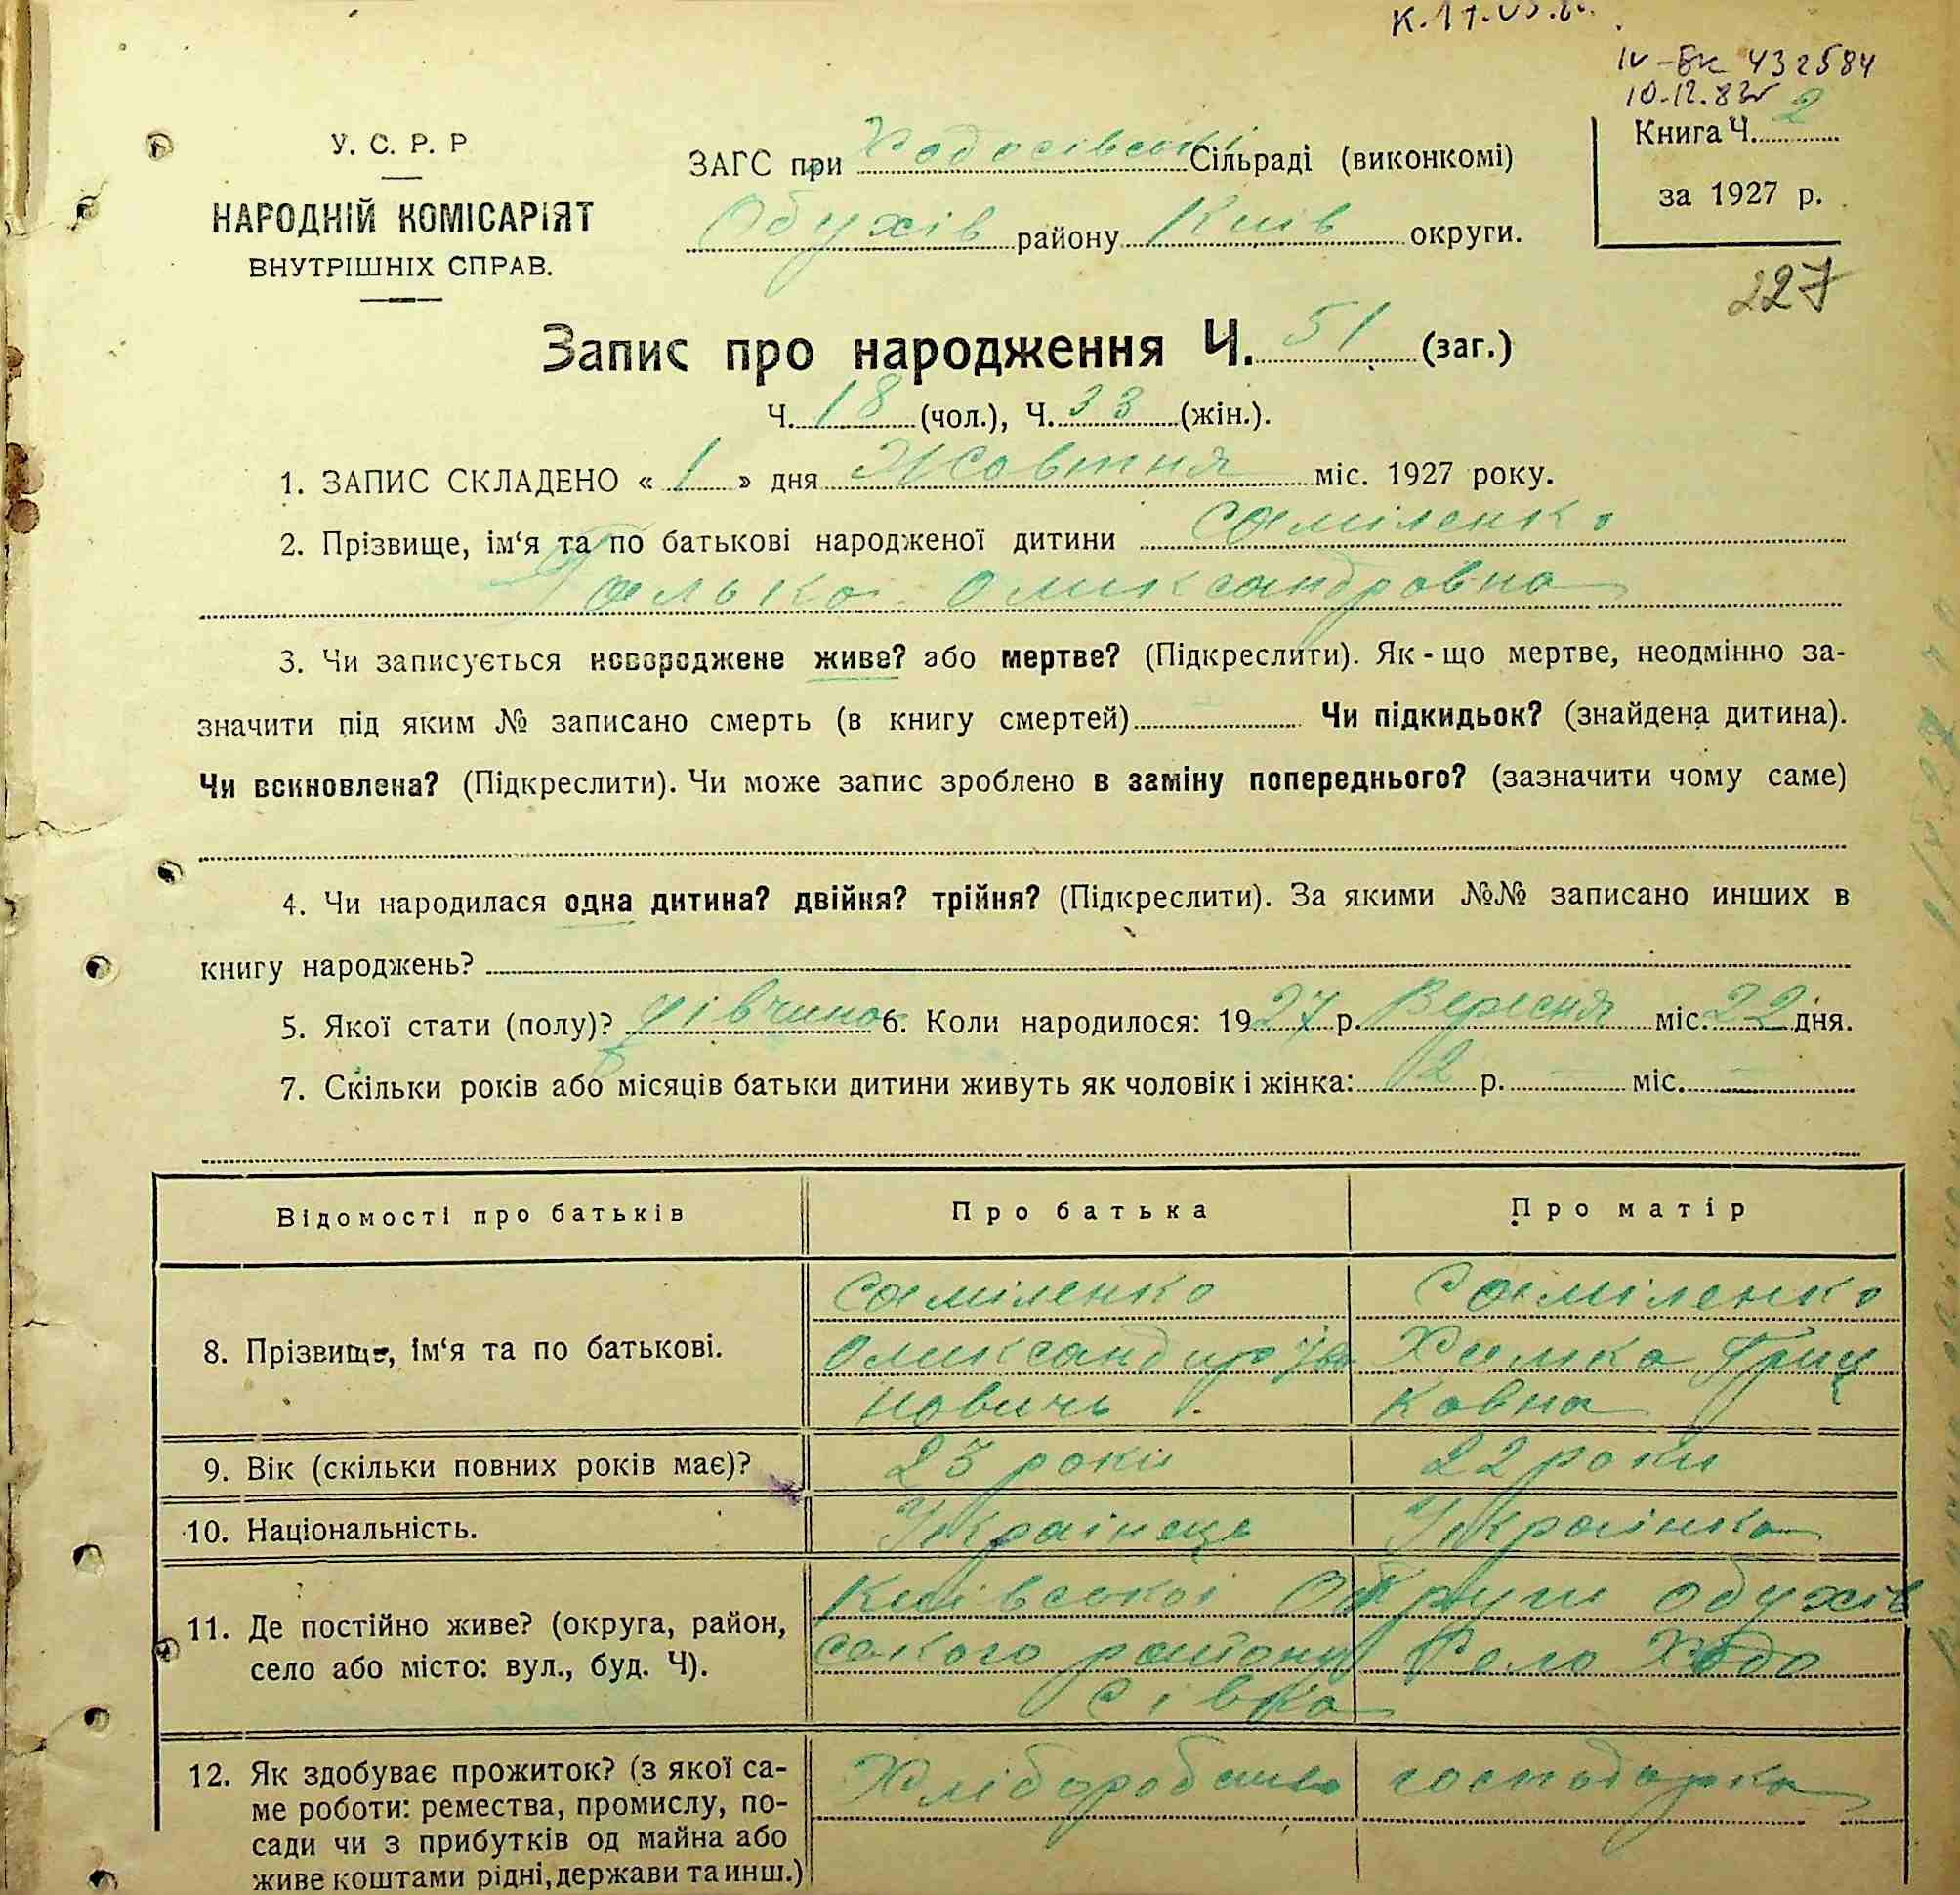 К. 17.03.
IV-БК 432584
10.12.83г
У. С. Р. Р
НАРОДНІЙ КОМІСАРІЯТ
ВНУТРІШНІХ СПРАВ.
ЗАГС при Ходосівські Сільраді (виконкомі)
Обухів району Київ округи.
Книга Ч. 2
за 1927 р.
227
Запис про народження Ч. 51 (заг.)
Ч. 18 (чол.), Ч. 33 (жін.).
1. ЗАПИС СКЛАДЕНО « 1 » дня Жовтня міс. 1927 року.
2. Прізвище, ім‘я та по батькові народженої дитини Саміленко
Галька Оликсандровна
3. Чи записується новороджене живе? або мертве? (Підкреслити). Як-що мертве, неодмінно за-
значити під яким № записано смерть (в книгу смертей) Чи підкидьок? (знайдена дитина).
Чи всиновлена? (Підкреслити). Чи може запис зроблено в заміну попереднього? (зазначити чому саме)
4. Чи народилася одна дитина? двійня? трійня? (Підкреслити). За якими №№ записано инших в
книгу народжень?
5. Якої стати (полу)? дівчина 6. Коли народилося: 1927 р. Вересня міс. 22 дня.
7. Скільки років або місяців батьки дитини живуть як чоловік і жінка: 2 р. — міс. —
Відомості про батьків Про батька Про матір
8. Прізвище, ім‘я та по батькові.
Саміленко
Оликсандир Іва
новичь
Саміленко
Химка Гриц
ковна
9. Вік (скільки повних років має)? 23 роки 22 роки
10. Національність. Українець Українка
11. Де постійно живе? (округа, район,
село або місто: вул., буд. Ч).
Київської Округи Обухів
ського району Село Ходо
сівка
12. Як здобуває прожиток? (з якої са-
ме роботи: ремества, промислу, по-
сади чи з прибутків од майна або
живе коштами рідні, держави та инш.)
Хліборобство господарка